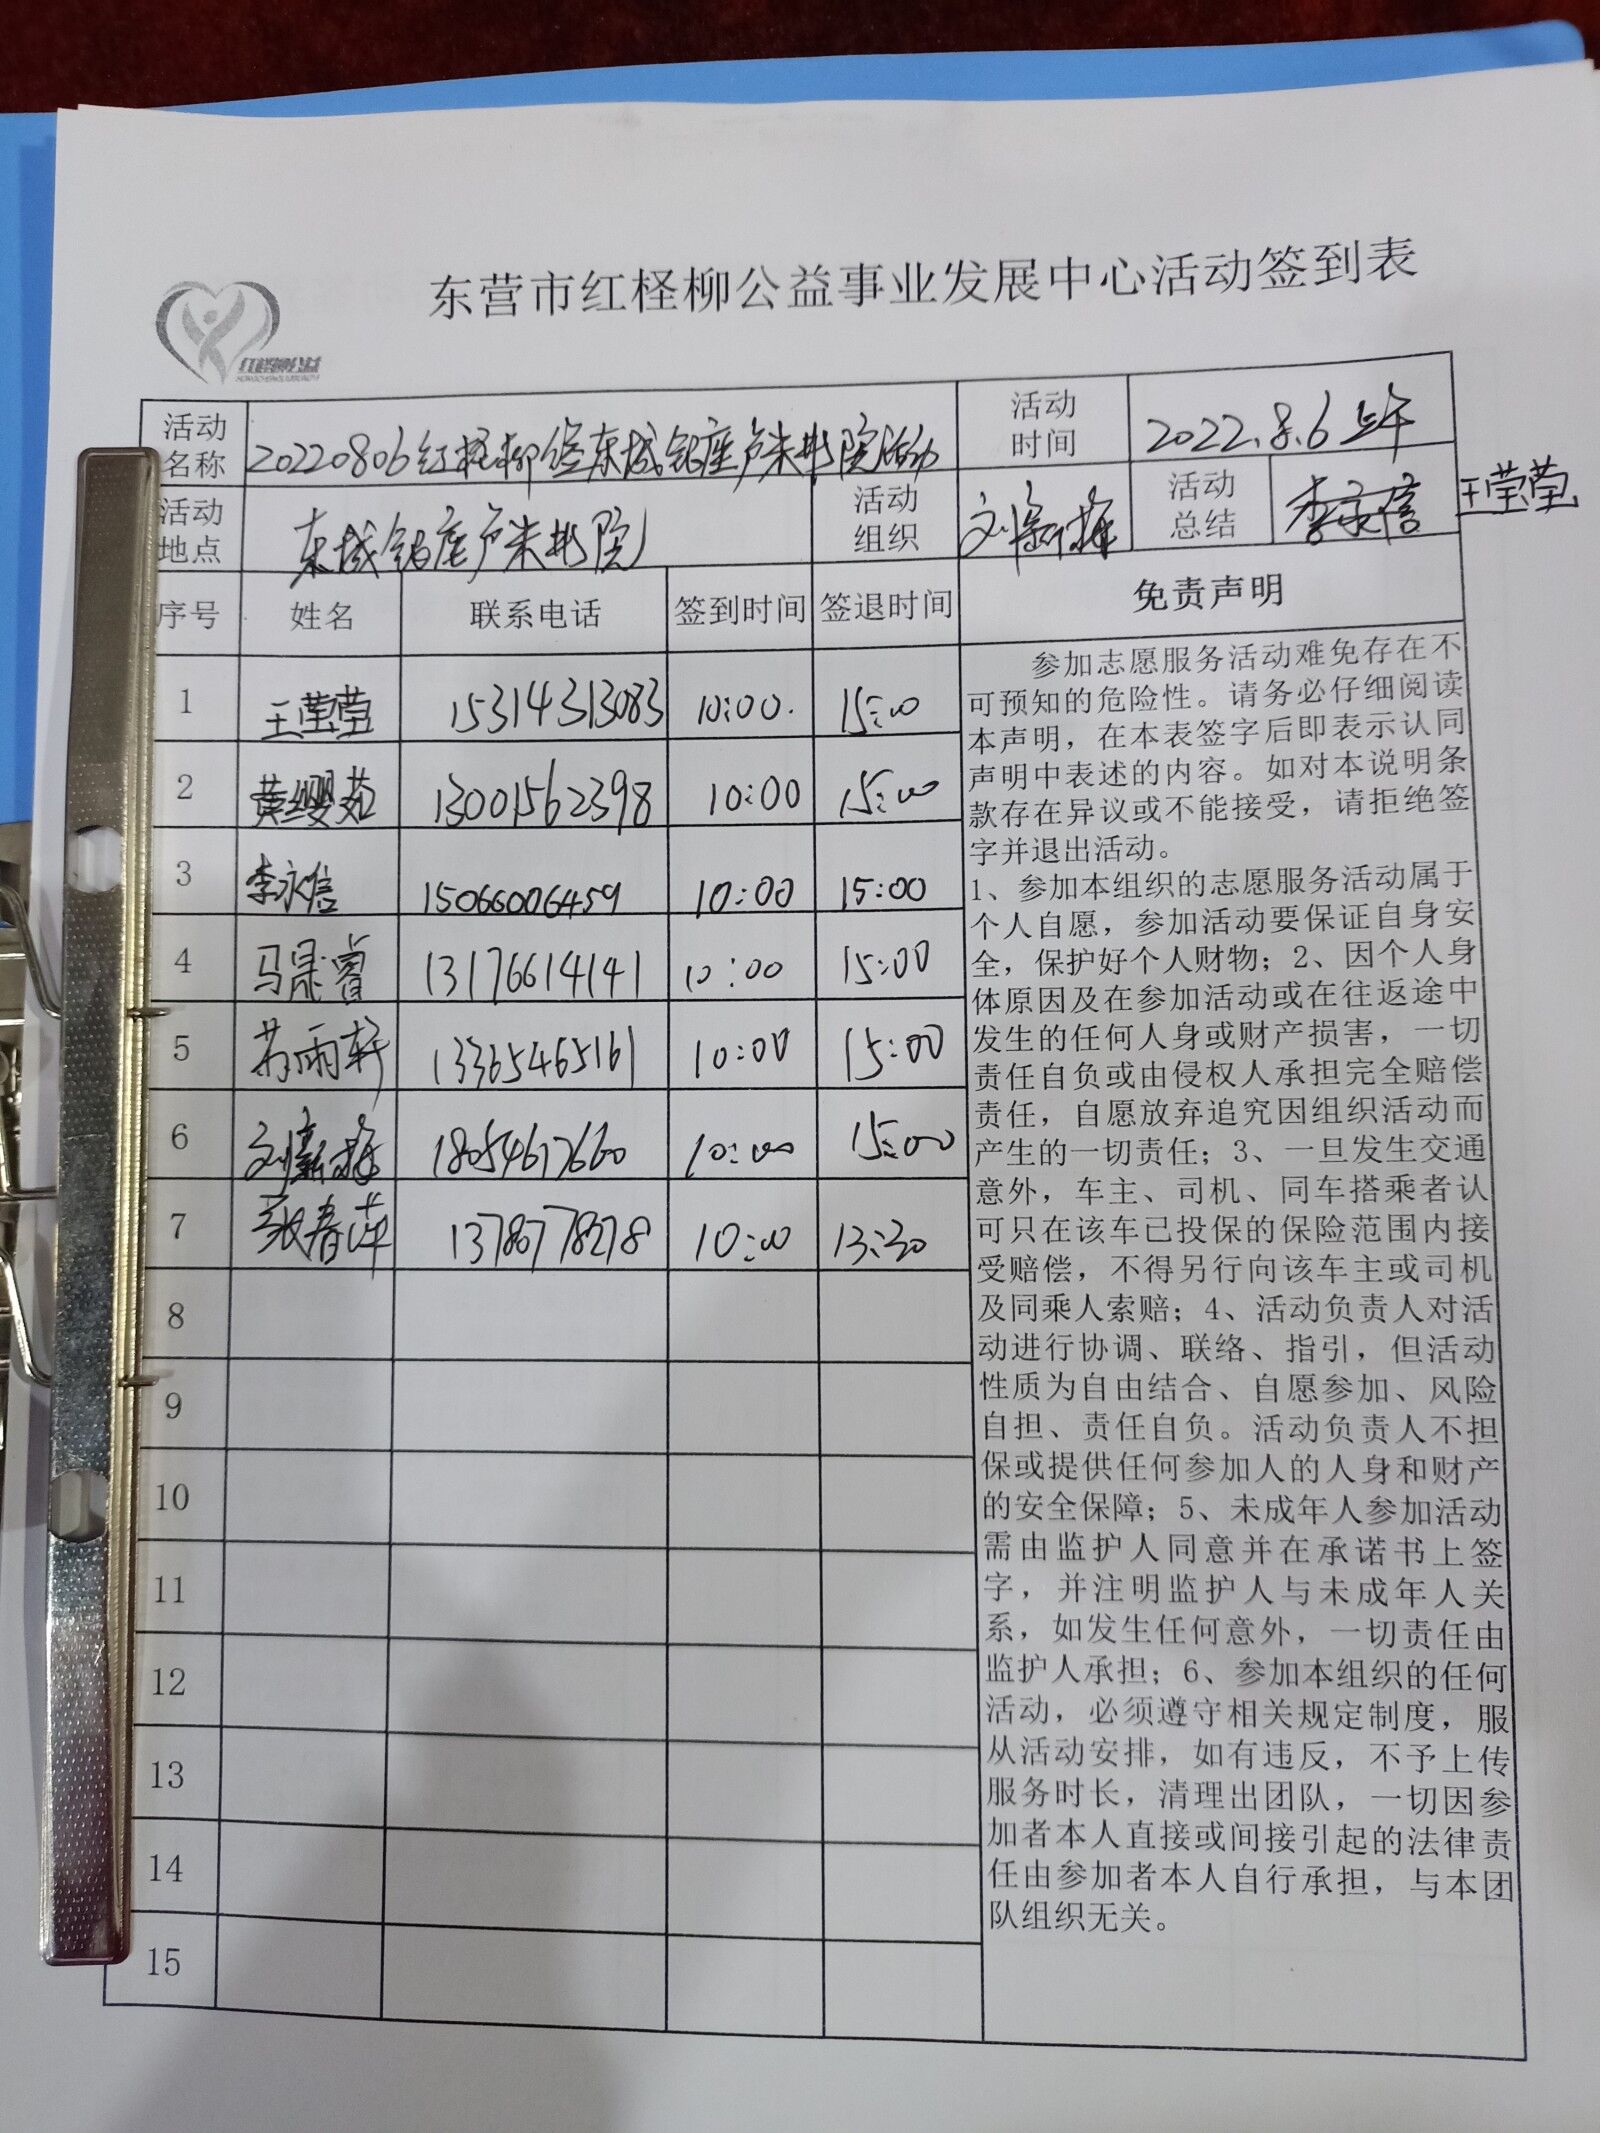 东营市红柽柳公益事业发展中心活动签到表
红柽柳公益
活动名称 20220806红柽柳 东城银座卢米 院活动 活动时间 2022.8.6 上午
活动地点 东城银座卢米 院 活动组织 刘新梅 活动总结 李永信 王莹莹
序号 姓名 联系电话 签到时间 签退时间 免责声明
1 王莹莹 15314313083 10:00. 15:00
2 黄缨茹 13001562398 10:00 15:00
3 李永信 15066006459 10:00 15:00
4 马晟睿 13176614141 10:00 15:00
5 雨轩 13365465161 10:00 15:00
6 刘新梅 18054617660 10:00 15:00
7 张春萍 13780778278 10:00 13:30
8
9
10
11
12
13
14
15
参加志愿服务活动难免存在不
可预知的危险性。请务必仔细阅读
本声明，在本表签字后即表示认同
声明中表述的内容。如对本说明条
款存在异议或不能接受，请拒绝签
字并退出活动。
1、参加本组织的志愿服务活动属于
个人自愿，参加活动要保证自身安
全，保护好个人财物；2、因个人身
体原因及在参加活动或在往返途中
发生的任何人身或财产损害，一切
责任自负或由侵权人承担完全赔偿
责任，自愿放弃追究因组织活动而
产生的一切责任；3、一旦发生交通
意外，车主、司机、同车搭乘者认
可只在该车已投保的保险范围内接
受赔偿，不得另行向该车主或司机
及同乘人索赔；4、活动负责人对活
动进行协调、联络、指引，但活动
性质为自由结合、自愿参加、风险
自担、责任自负。活动负责人不担
保或提供任何参加人的人身和财产
的安全保障；5、未成年人参加活动
需由监护人同意并在承诺书上签
字，并注明监护人与未成年人关
系，如发生任何意外，一切责任由
监护人承担；6、参加本组织的任何
活动，必须遵守相关规定制度，服
从活动安排，如有违反，不予上传
服务时长，清理出团队，一切因参
加者本人直接或间接引起的法律责
任由参加者本人自行承担，与本团
队组织无关。